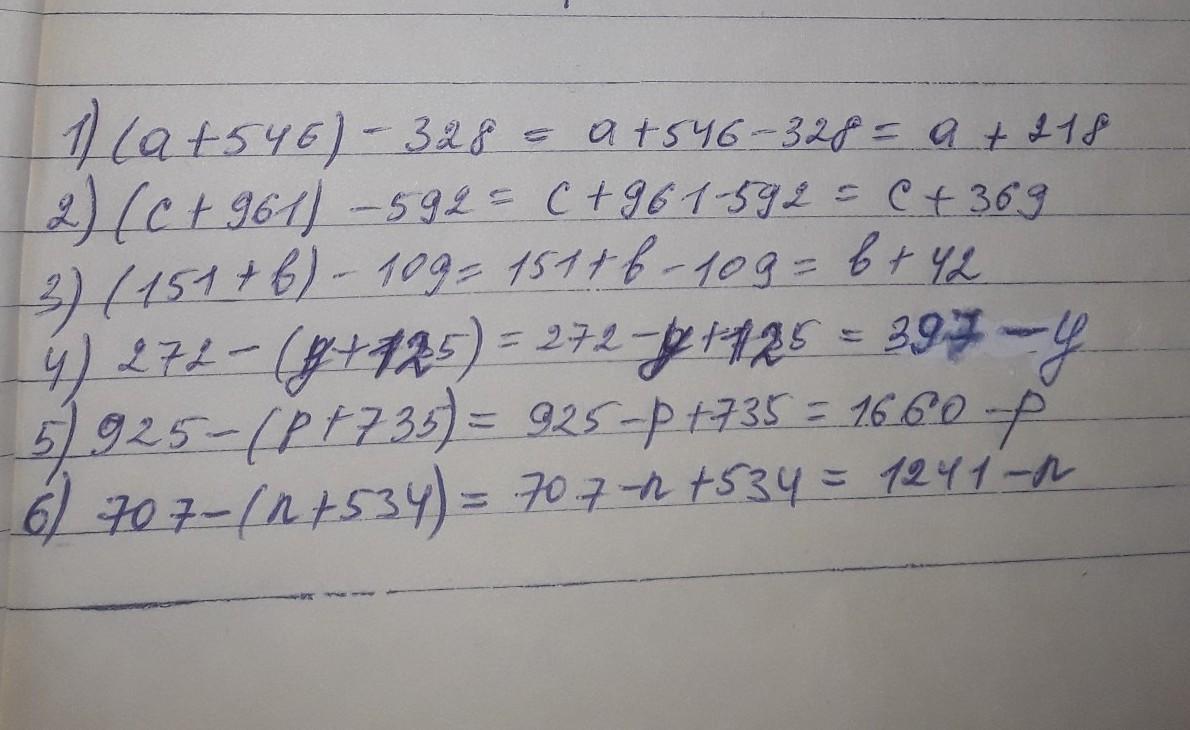 1) (a+546) - 328 = a+546-328 = a + 218
2) (c+961) - 592 = c+961-592 = c+369
3) (151+b) - 109 = 151+b-109 = b+42
4) 272-(y+125) = 272-y+125 = 397-y
5) 925-(p+735) = 925-p+735 = 1660-p
6) 707-(n+534) = 707-n+534 = 1241-n